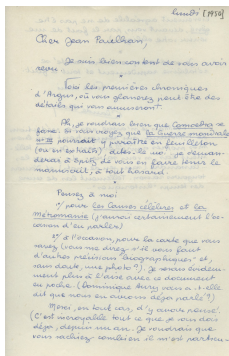 lundi [1950]
Cher Jean Paulhan,
Je suis bien content de vous avoir
revu.
Voici les premières chroniques
d'Argus, où vous glanerez peut-être des
détails qui vous amuseront.
Ah, je voudrais bien que
se fasse. Si vous croyez que la Guerre mondiale
n° III pourrait y paraître en feuilleton
(ou m'est
derai à Spitz de vous en faire tenir le
manuscrit, à tout hasard.
Pensez à moi
1°/ pour les Causes célèbres et la
métromanie (j'aurai certainement l'oc-
casion d'en parler)
2° à l'occasion, pour la carte que vous
savez (vous me direz s'il vous faut
d'autres précisions biographiques et,
sans doute, une photo ?). Je serais
ment plus à l'aise avec ce document
en poche. (Dominique Aury vous a-t-elle
dit que nous en avions déjà parlé ?)
Merci, en tout cas, d'y avoir pensé.
C'est incroyable tout ce que je vous dois
déjà, depuis un an. Je voudrais que
vous sachiez combien il m'est